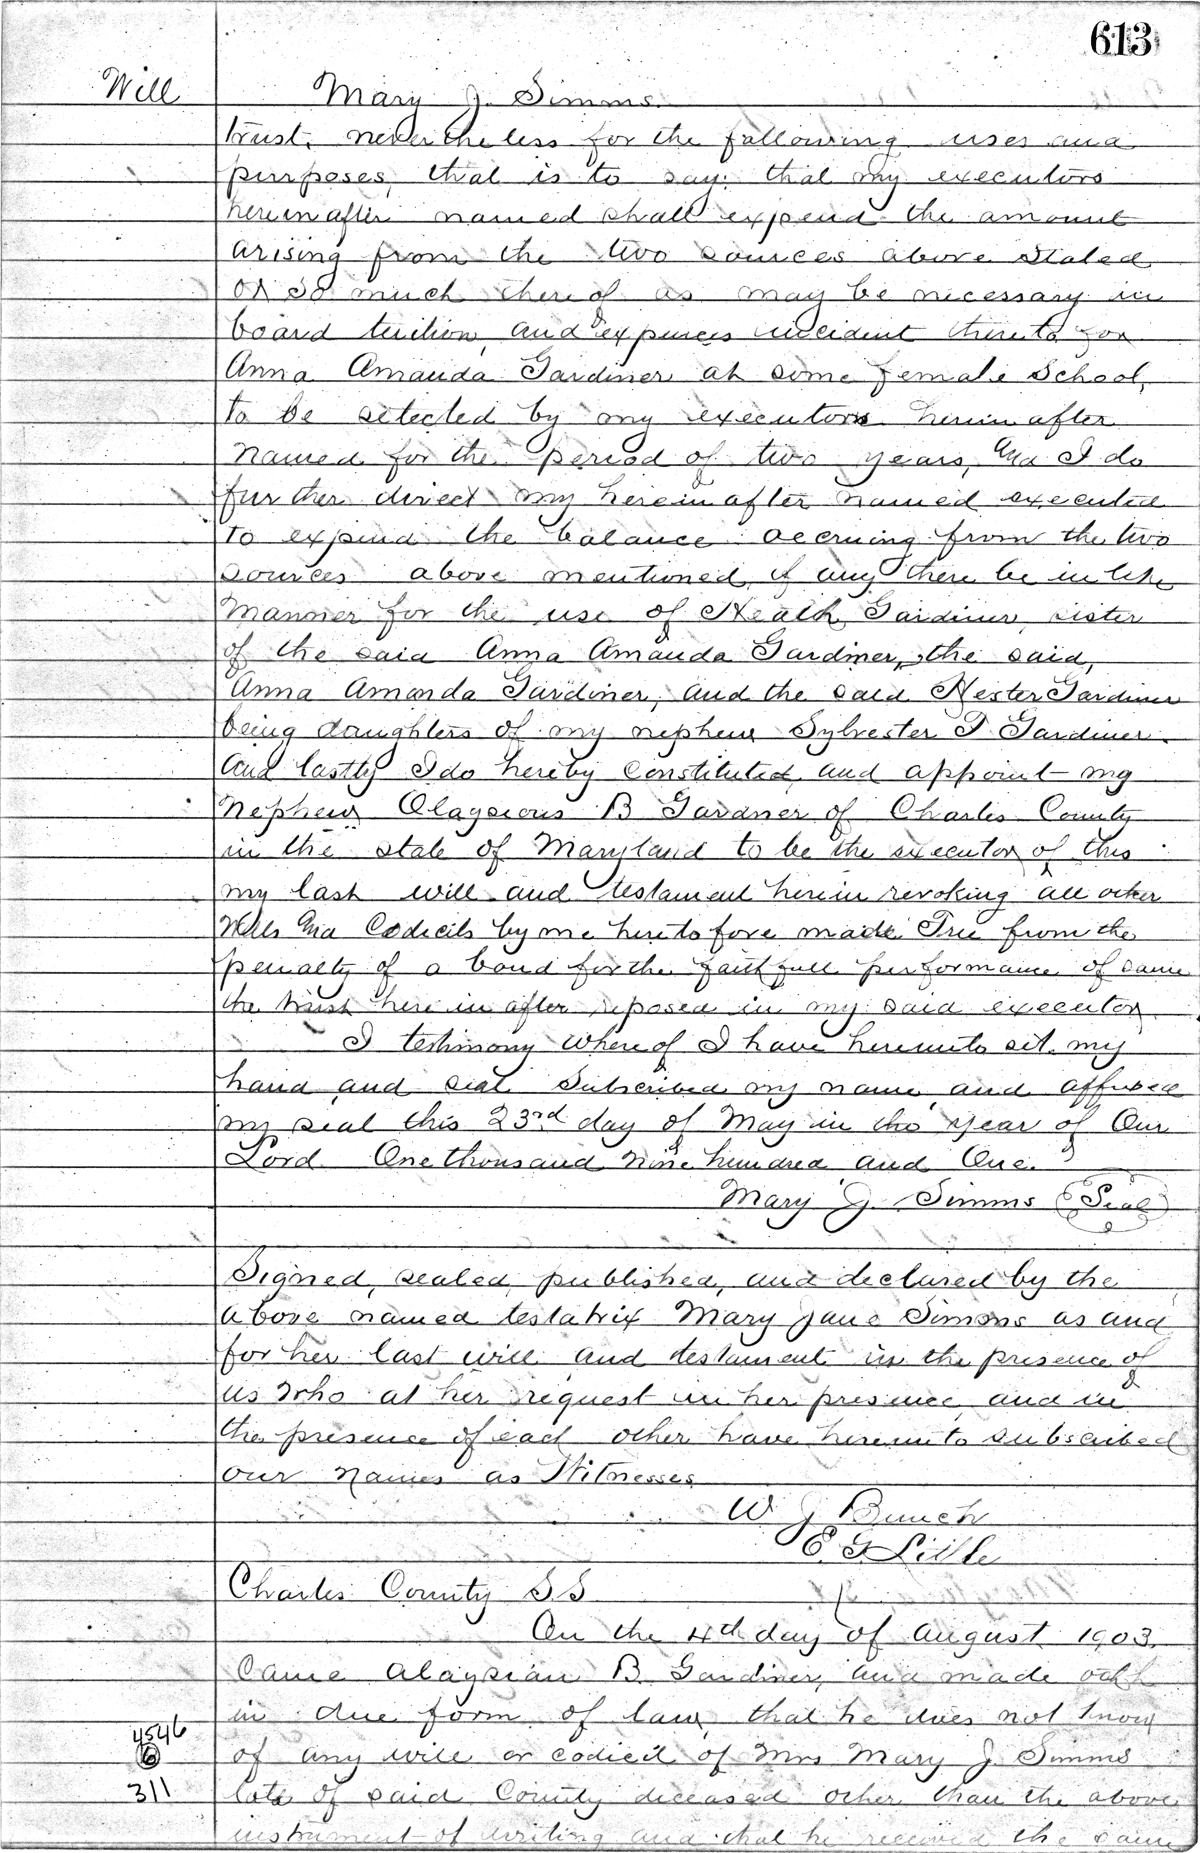 613
Will
Mary J. Simms.
trust, nevertheless for the following uses and
purposes, that is to say: that my executors
hereinafter named shall expend the amount
arising from the two sources above stated
or so much thereof as may be necessary in
board tuition, and expences incident thereto for
Anna Amanda Gardiner at some female School,
to be selected by my executors herein after
named for the period of two years, And I do
further direct my herein after named executed
to expend the balance accruing from the two
sources above mentioned, if any there be in like
manner for the use of Gardiner, sister
of the said Anna Amanda Gardiner, the said,
Anna Amanda Gardiner, and the said Hester Gardiner
being daughters of my nephew Sylvester Gardiner.
And lastly I do hereby constituted and appoint my
Nephew Olaysious B Gardner of Charles County
in the state of Maryland to be the executor of this
my last will and testament herein revoking all other
Wills and Codicils by me heretofore made Free from the
penalty of a bond for the faithfull performance of same
the trust here in after reposed in my said executor
I testimony where of I have hereunto set my
hand and seal Subscribed my name and affixed
my seal this 23rd day of May in the year of Our
Lord One thousand nine hundred and One.
Mary J. Simms (Seal)
Signed, sealed, published, and declared by the
above named testatrix Mary Jane Simms as and
for her last will and testament in the presence of
us who at her request in her presence and in
the presence of each other have hereunto subscribed
our names as Witnesses
W J Bunch
E. G Lille
Charles County SS
On the 4th day of August 1903.
Came Alaysian B. Gardiner, and made oath
in due form of law, that he does not know
of any will or codicil of Mrs Mary J. Simms
late of said County deceased other than the above
instrument of writing and that he received the same
4546
6
311